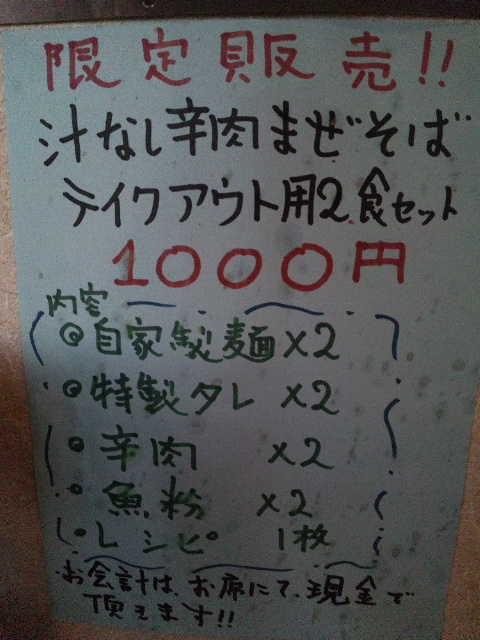 限定販売!!
汁なし辛肉まぜそば
テイクアウト用2食セット
1000円
内容
◎自家製麺×2
◎特製タレ×2
◎辛肉×2
◎魚粉×2
◎レシピ 1枚
お会計は、お席にて、現金で
頂きます!!